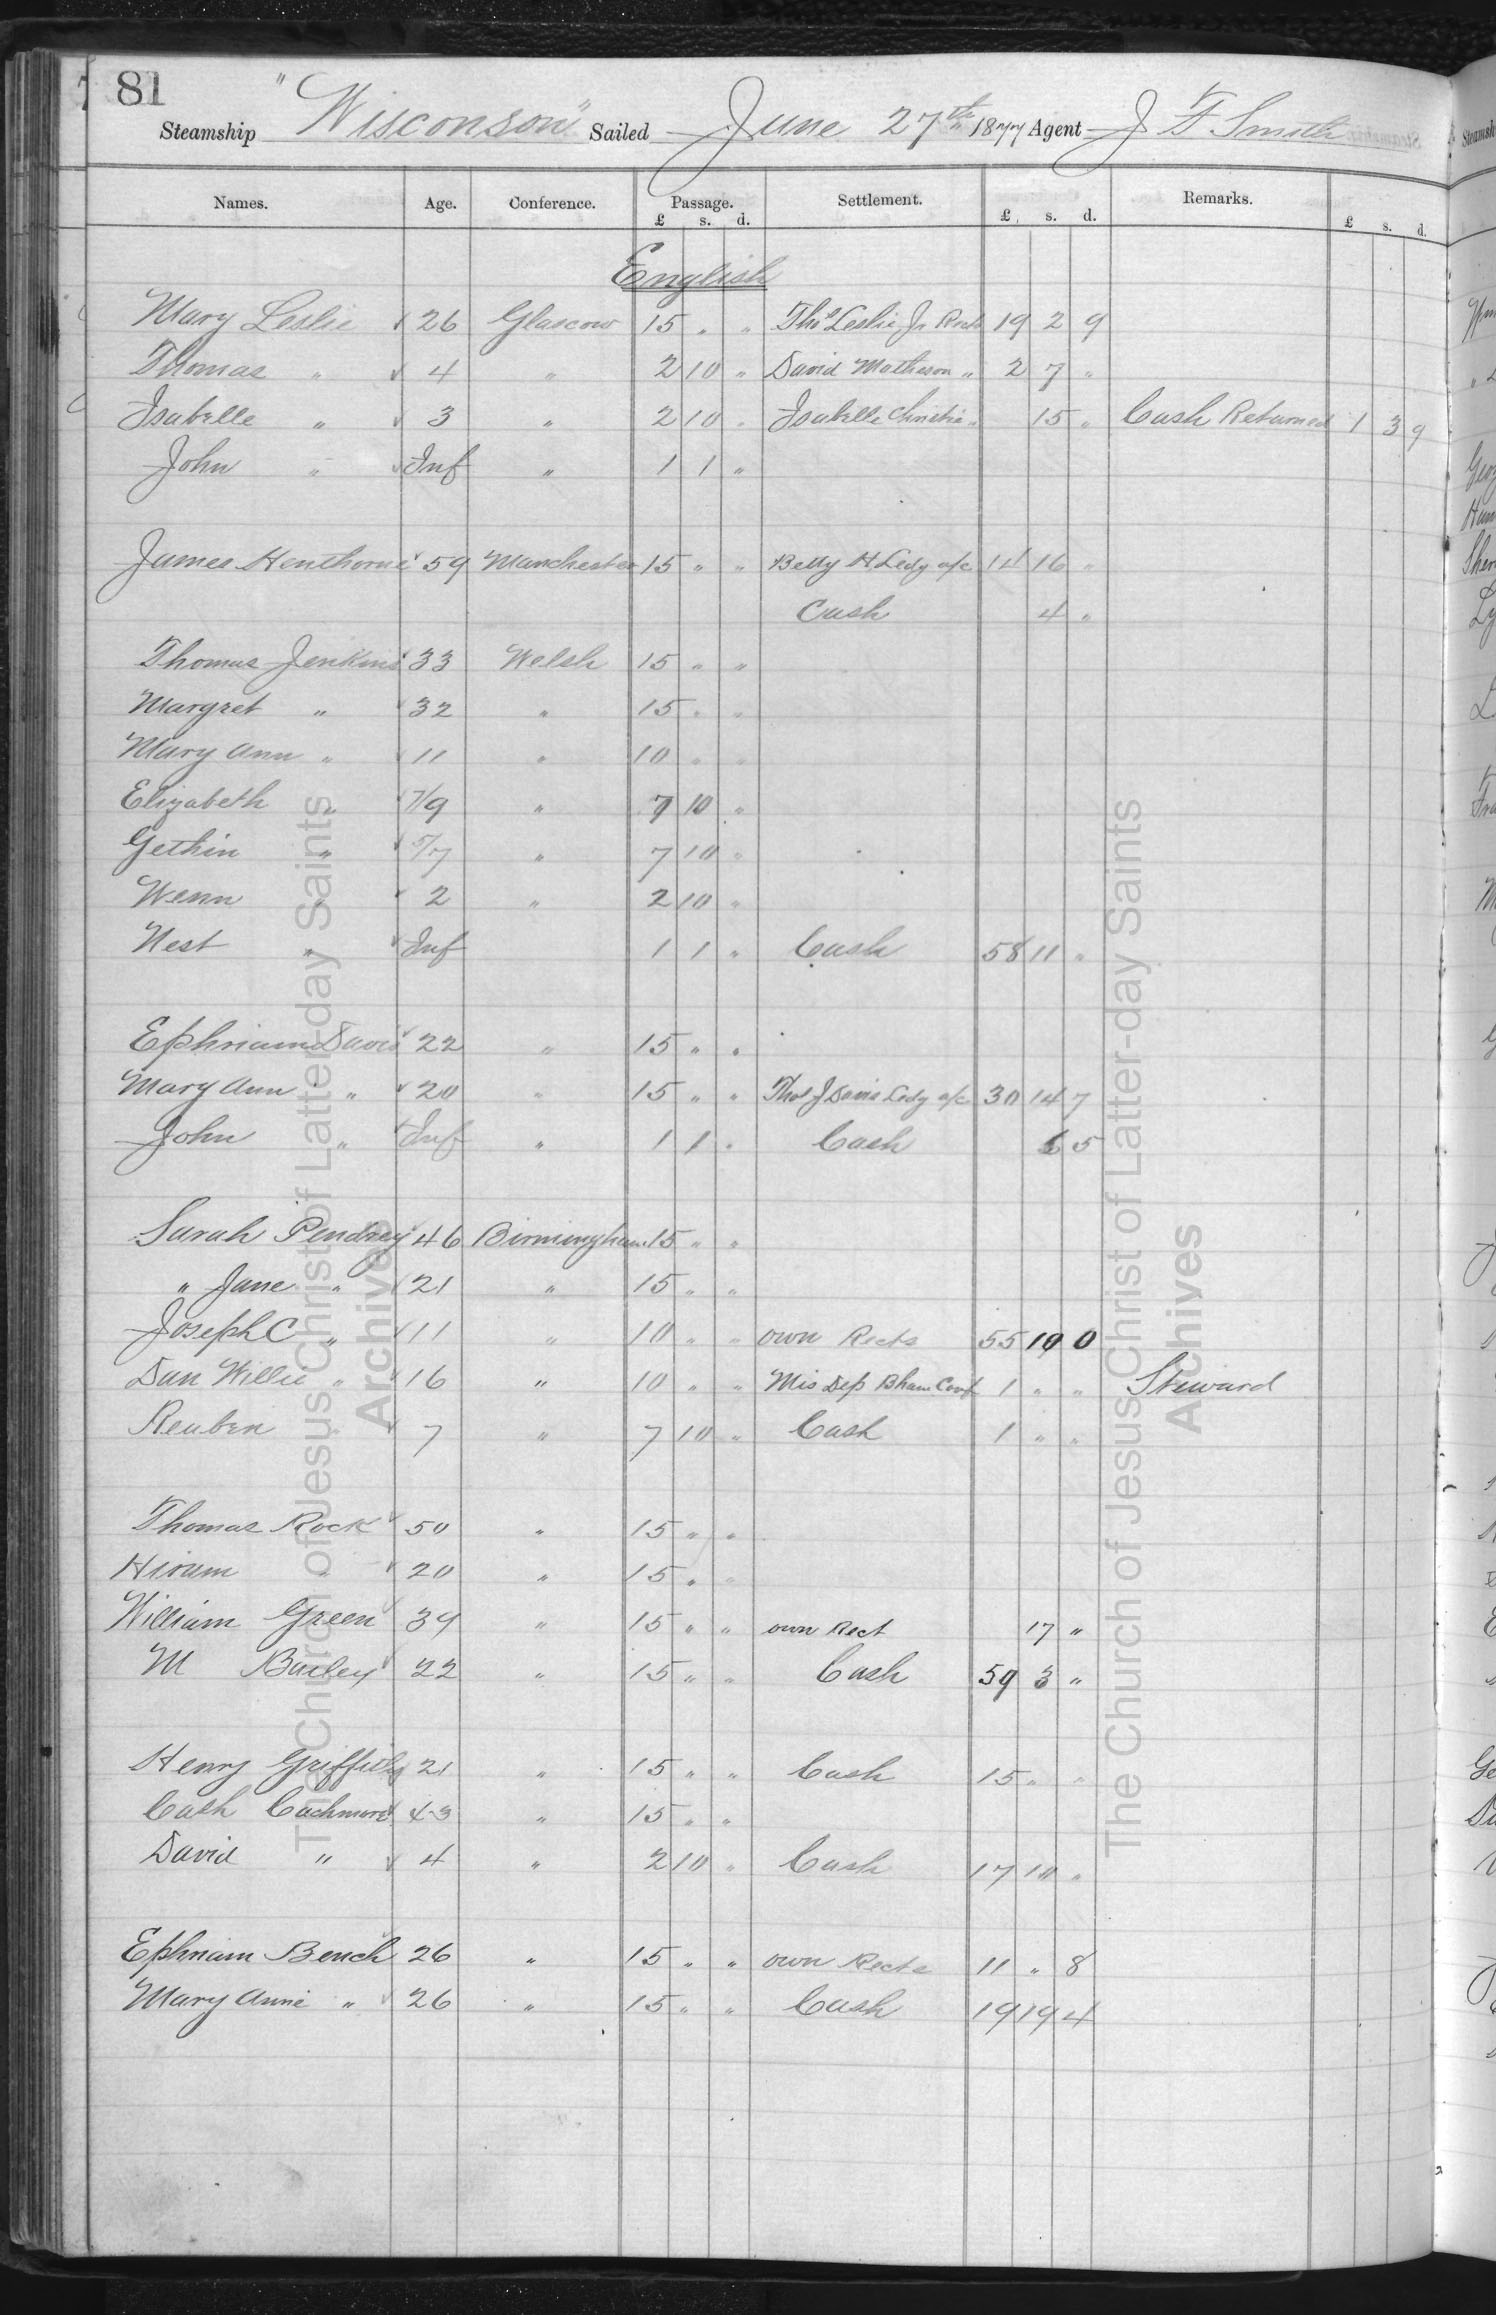 81
Steamship "Wisconson" Sailed June 27th 1877 Agent J F Smith
Names. Age. Conference. Passage. Settlement. Remarks.
£ s. d. £ s. d. £ s. d.
English
Mary Leslie 26 Glascow 15 " " Thos Leslie Jr Rects 19 2 9
Thomas " 4 " 2 10 " David Matheson " 2 7 "
Isabelle " 3 " 2 10 " Isabelle Christie " 15 " Cash Returned 1 3 9
John " Inf " 1 1 "
James Henthorne 59 Manchester 15 " " Betty H Ledg a/c 14 16 "
Cash 4 "
Thomas Jenkins 33 Welsh 15 " "
Margret " 32 " 15 " "
Mary Ann " 11 " 10 " "
Elizabeth " 7/9 " 7 10 "
Gethin " 5/7 " 7 10 "
Wenn " 2 " 2 10 "
Nest " Inf 1 1 " Cash 58 11 "
Ephriam Davis 22 " 15 " "
Mary Ann " 20 " 15 " " Thos J Davis Ledg a/c 30 14 7
John " Inf " 1 1 " Cash 6 5
Sarah Pendrey 46 Birmingham 15 " "
" Jane " 21 " 15 " "
Joseph C " 11 " 10 " " own Rects 55 10 0
Dan Willie " 16 " 10 " " Mis Dep Bham Conf 1 " " Steward
Reuben " 7 " 7 10 " Cash 1 " "
Thomas Rock 50 " 15 " "
Hiram " 20 " 15 " "
William Green 39 " 15 " " own Rect 17 "
M Bailey 22 " 15 " " Cash 59 3 "
Henry Griffiths 21 " 15 " " Cash 15 " "
Cath Cachmore 43 " 15 " "
David " 4 " 2 10 " Cash 17 10 "
Ephriam Bench 26 " 15 " " own Rects 11 " 8
Mary Anne " 26 " 15 " " Cash 19 19 4
The Church of Jesus Christ of Latter-day Saints
Archives
The Church of Jesus Christ of Latter-day Saints
Archives